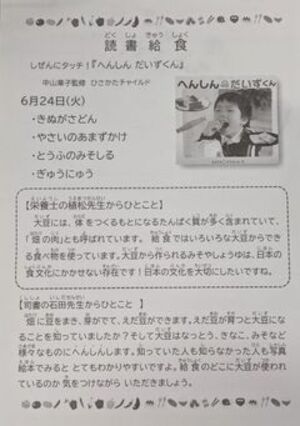 読書給食
しぜんにタッチ!『へんしん だいずくん』
中山章子監修 ひさかたチャイルド
6月24日(火)
・きぬがさどん
・やさいのあまずかけ
・とうふのみそしる
・ぎゅうにゅう
へんしん だいずくん
【栄養士の植松先生からひとこと】
大豆には、体をつくるもとになるたんぱく質が多く含まれていて、
「畑の肉」とも呼ばれています。給食ではいろいろな大豆からでき
る食べ物を使っています。大豆から作られるみそやしょうゆは、日本の
食文化にかかせない存在です!日本の文化を大切にしたいですね。
【司書の石田先生からひとこと】
畑に豆をまき、芽がでて、えだ豆ができます。えだ豆が育つと大豆にな
ることを知っていましたか?そして大豆はなっとう、きなこ、みそなど
様々なものにへんしんします。知っていた人も知らなかった人も写真
絵本でみると とてもわかりやすいですよ。給食のどこに大豆が使われ
ているのか 気をつけながら いただきましょう。